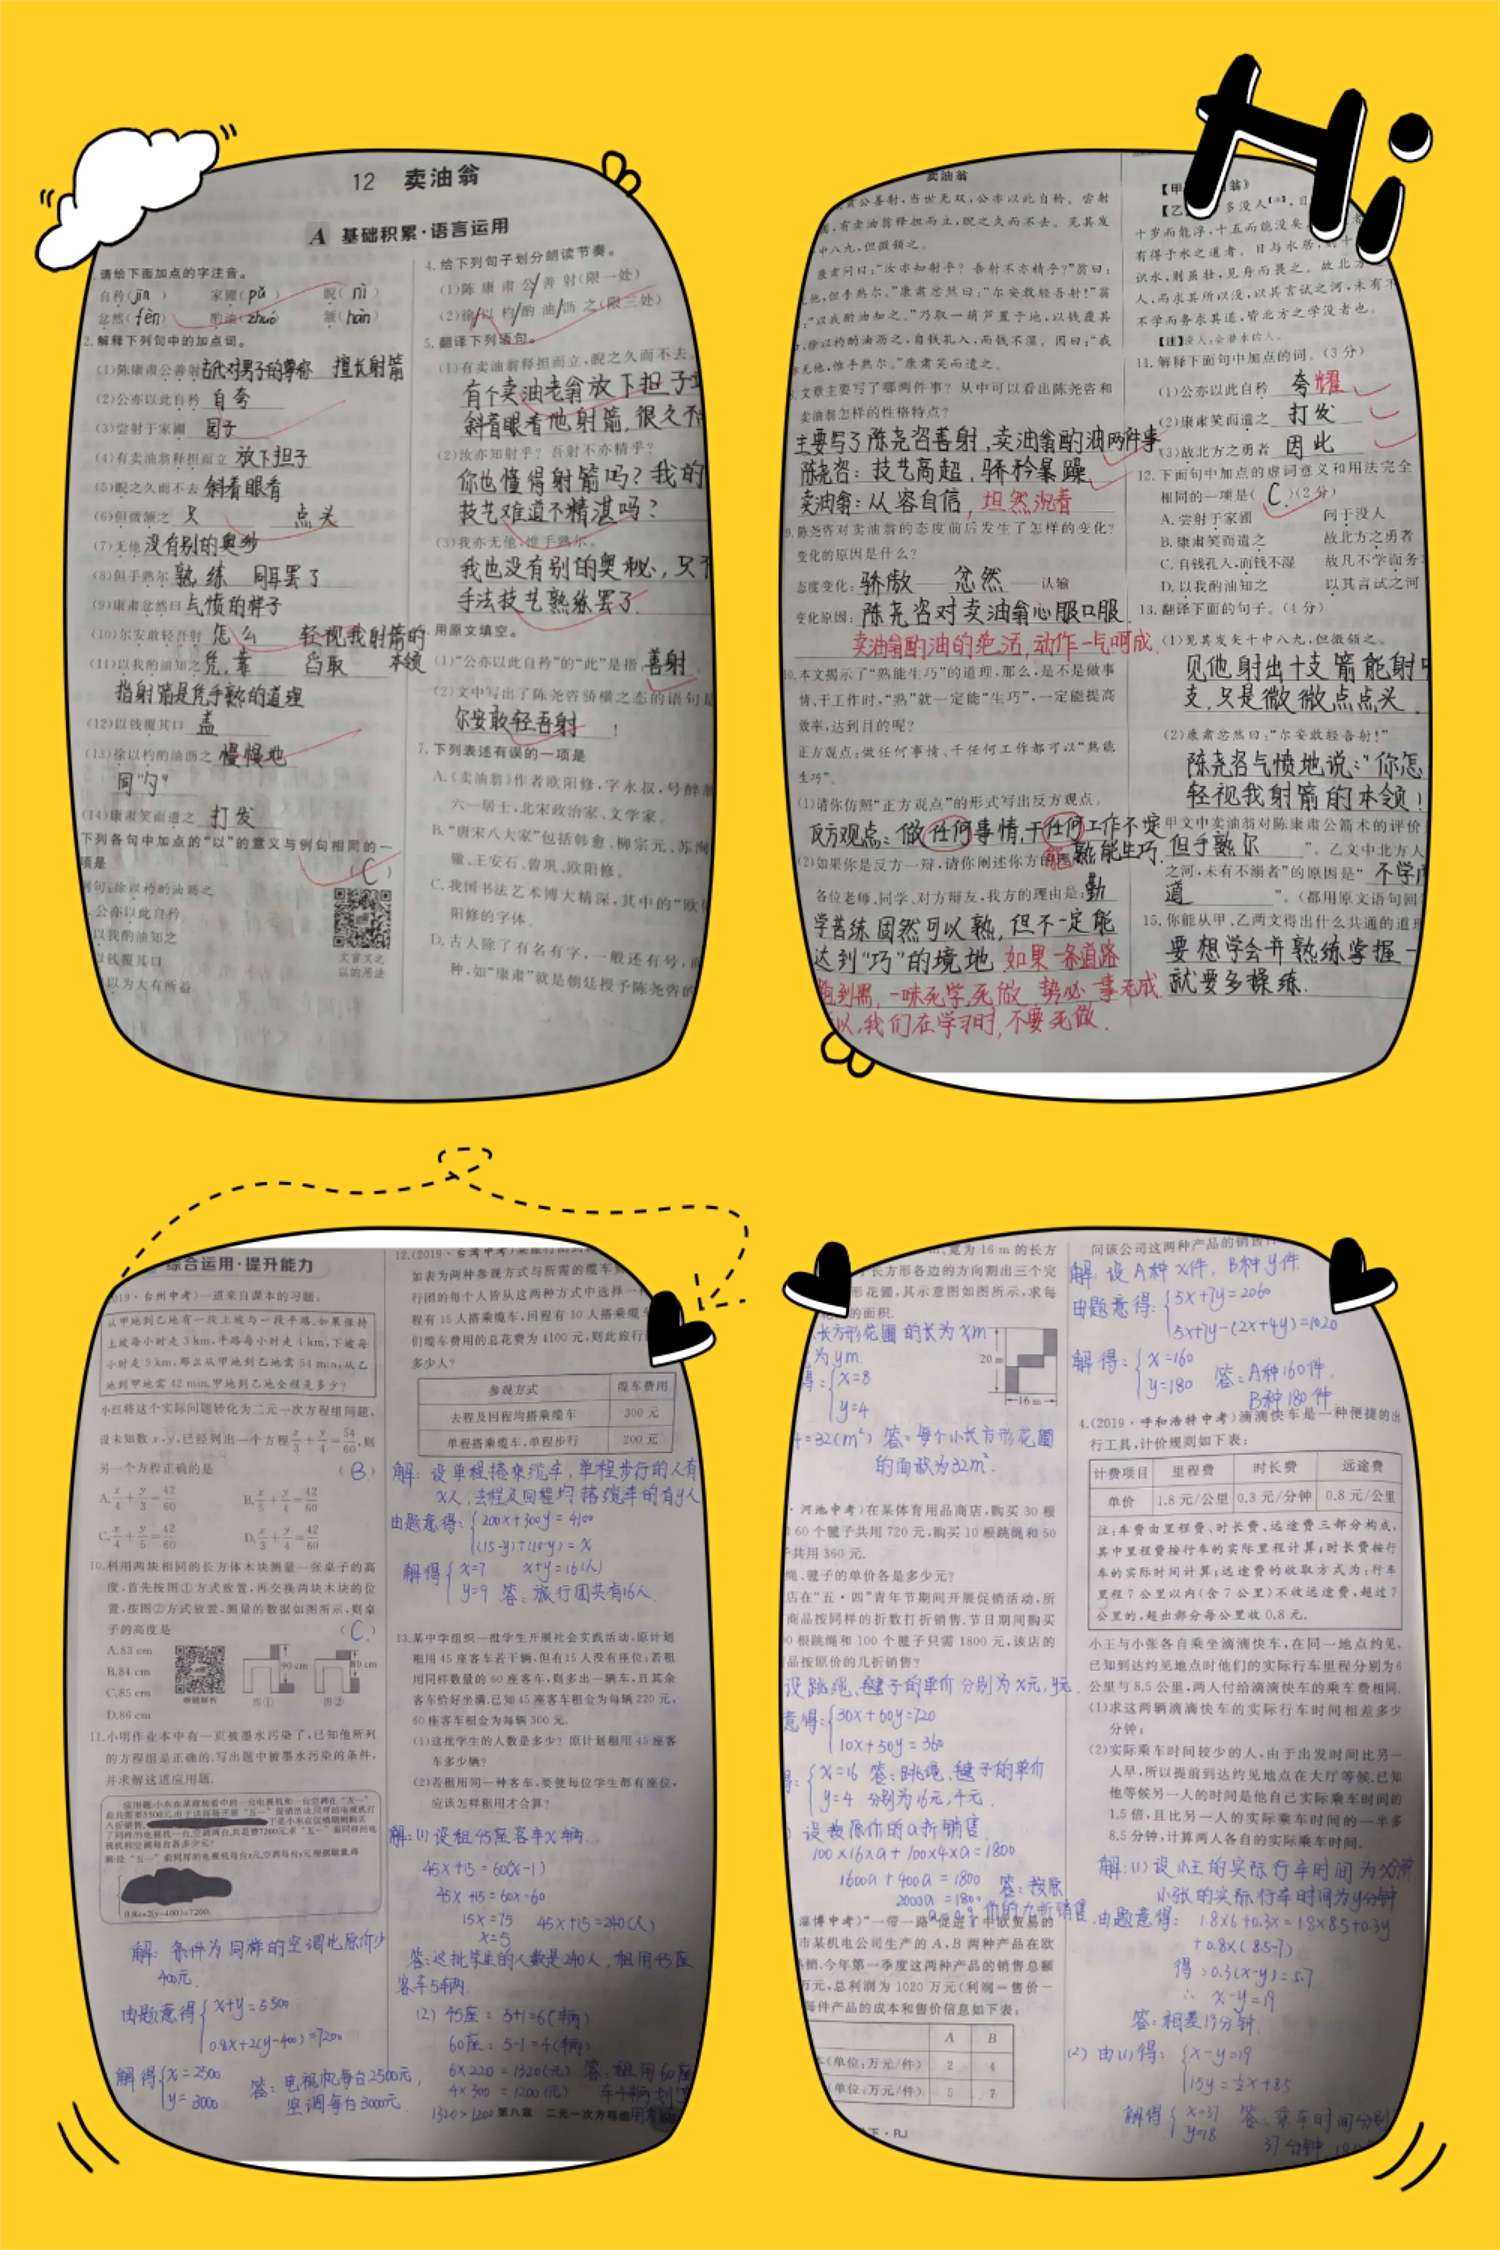 Hi
12 卖油翁
A 基础积累·语言运用
请给下面加点的字注音。
自矜(jīn) 家圃(pǔ) 睨(nì)
忿然(fèn) 酌油(zhuó) 颔(hàn)
2.解释下列句中的加点词。
(1)陈康肃公善射 古代对男子的尊称 擅长射箭
(2)公亦以此自矜 自夸
(3)尝射于家圃 园子
(4)有卖油翁释担而立 放下担子
(5)睨之久而不去 斜着眼看
(6)但微颔之 只 点头
(7)无他 没有别的奥妙
(8)但手熟尔 熟练 同耳罢了
(9)康肃忿然曰 气愤的样子
(10)尔安敢轻吾射 怎么 轻视我射箭的
本领
(11)以我酌油知之 凭,靠 舀取
指射箭是凭手熟的道理
(12)以钱覆其口 盖
(13)徐以杓酌油沥之 慢慢地
同"勺"
(14)康肃笑而遣之 打发
下列各句中加点的“以”的意义与例句相同的一
项是 (C)
例句:徐以杓酌油沥之
公亦以此自矜
以我酌油知之
以钱覆其口
以为大有所益
文言文之
以的用法
4.给下列句子划分朗读节奏。
(1)陈康肃公/善射(限一处)
(2)徐/以杓/酌油/沥之(限三处)
5.翻译下列语句。
(1)有卖油翁释担而立,睨之久而不去。
有个卖油老翁放下担子
斜着眼看他射箭,很久不
(2)汝亦知射乎?吾射不亦精乎?
你也懂得射箭吗?我的
技艺难道不精湛吗?
(3)我亦无他,惟手熟尔。
我也没有别的奥秘,只
手法技艺熟练罢了.
用原文填空。
(1)“公亦以此自矜”的“此”是指 善射
(2)文中写出了陈尧咨骄横之态的语句是
尔安敢轻吾射 !
7.下列表述有误的一项是
A.《卖油翁》作者欧阳修,字永叔,号醉翁
六一居士,北宋政治家、文学家。
B.“唐宋八大家”包括韩愈、柳宗元、苏洵
辙、王安石、曾巩、欧阳修。
C.我国书法艺术博大精深,其中的“欧
阳修的字体。
D.古人除了有名有字,一般还有号,
种,如“康肃”就是朝廷授予陈尧咨的
卖油翁
肃公善射,当世无双,公亦以此自矜。尝射
有卖油翁释担而立,睨之久而不去。见其发
中八九,但微颔之。
康肃问曰:“汝亦知射乎?吾射不亦精乎?”翁曰:
他,但手熟尔。”康肃忿然曰:“尔安敢轻吾射!”翁
:“以我酌油知之。”乃取一葫芦置于地,以钱覆其
徐以杓酌油沥之,自钱孔入,而钱不湿。因曰:“我
无他,惟手熟尔。”康肃笑而遣之。
文章主要写了哪两件事?从中可以看出陈尧咨和
卖油翁怎样的性格特点?
主要写了陈尧咨善射,卖油翁酌油两件事
陈尧咨:技艺高超,骄矜暴躁
卖油翁:从容自信,坦然沉着
9.陈尧咨对卖油翁的态度前后发生了怎样的变化?
变化的原因是什么?
态度变化:骄傲——忿然——认输
变化原因:陈尧咨对卖油翁心服口服
卖油翁酌油的绝活,动作一气呵成.
10.本文揭示了“熟能生巧”的道理,那么,是不是做事
情、干工作时,“熟”就一定能“生巧”,一定能提高
效率,达到目的呢?
正方观点:做任何事情、干任何工作都可以“熟能
生巧”。
(1)请你仿照“正方观点”的形式写出反方观点。
反方观点:做任何事情,干任何工作不一定
能熟能生巧.
(2)如果你是反方一辩,请你阐述你方的
各位老师、同学、对方辩友,我方的理由是:勤
学苦练固然可以熟,但不一定能
达到"巧"的境地 如果一条道路
跑到黑,一味死学,死做,势必一事无成
以,我们在学习时,不要死做.
十岁而能浮,十五而能没矣
有得于水之道者。日与水居,则十
识水,则虽壮,见舟而畏之。故北方
人,而求其所以没,以其言试之河,未有不
不学而务求其道,皆北方之学没者也。
【注】没人:会潜水的人。
11.解释下面句中加点的词。(3分)
(1)公亦以此自矜 夸耀
(2)康肃笑而遣之 打发
(3)故北方之勇者 因此
12.下面句中加点的虚词意义和用法完全
相同的一项是(C)(2分)
A.尝射于家圃 问于没人
B.康肃笑而遣之 故北方之勇者
C.自钱孔入,而钱不湿 故凡不学而务
D.以我酌油知之 以其言试之河
13.翻译下面的句子。(4分)
(1)见其发矢十中八九,但微颔之。
见他射出十支箭能射中
支,只是微微点点头.
(2)康肃忿然曰:“尔安敢轻吾射!”
陈尧咨气愤地说:"你怎
轻视我射箭的本领!
甲文中卖油翁对陈康肃公箭术的评价
但手熟尔 ”。乙文中北方人
之河,未有不溺者”的原因是“ 不学
道 ”。(都用原文语句回
15.你能从甲、乙两文得出什么共通的道理
要想学会并熟练掌握一
就要多操练.
综合运用·提升能力
2019·台州中考)一道来自课本的习题:
从甲地到乙地有一段上坡与一段平路.如果保持
上坡每小时走3 km,平路每小时走4 km,下坡每
小时走5 km,那么从甲地到乙地需54 min,从乙
地到甲地需42 min.甲地到乙地全程是多少?
小红将这个实际问题转化为二元一次方程组问题,
设未知数x,y,已经列出一个方程x/3+y/4=54/60,则
另一个方程正确的是 (B)
A.x/4+y/3=42/60 B.x/5+y/4=42/60
C.x/4+y/5=42/60 D.x/3+y/4=42/60
10.利用两块相同的长方体木块测量一张桌子的高
度,首先按图①方式放置,再交换两块木块的位
置,按图②方式放置,测量的数据如图所示,则桌
子的高度是 (C.)
A.83 cm
B.84 cm
C.85 cm
D.86 cm
90 cm 80 cm
图① 图②
11.小明作业本中有一页被墨水污染了,已知他所列
的方程组是正确的,写出题中被墨水污染的条件,
并求解这道应用题.
解: 条件为同样的空调比原价少
400元.
由题意得{x+y=5500
0.8x+2(y-400)=7200
解得{x=2500
y=3000
答:电视机每台2500元,
空调每台3000元.
12.(2019·台湾中考)
如表为两种参观方式与所需的缆车
行团的每个人皆从这两种方式中选择一
程有15人搭乘缆车,回程有10人搭乘缆
们缆车费用的总花费为4100元,则此旅行
多少人?
参观方式 缆车费用
去程及回程均搭乘缆车 300元
单程搭乘缆车,单程步行 200元
解: 设单程搭乘缆车,单程步行的人有
x人,去程及回程均搭缆车的有y人
由题意得:{200x+300y=4100
(15-y)+(10-y)=x
解得{x=7 x+y=16(人)
y=9 答:旅行团共有16人.
13.某中学组织一批学生开展社会实践活动,原计划
租用45座客车若干辆,但有15人没有座位;若租
用同样数量的60座客车,则多出一辆车,且其余
客车恰好坐满.已知45座客车租金为每辆220元,
60座客车租金为每辆300元.
(1)这批学生的人数是多少?原计划租用45座客
车多少辆?
(2)若租用同一种客车,要使每位学生都有座位,
应该怎样租用才合算?
解:(1)设租45座客车x辆.
45x+15=60(x-1)
45x+15=60x-60
15x=75 45x+15=240(人)
x=5
答:这批学生的人数是240人,租用45座
客车5辆.
(2) 45座: 5+1=6(辆)
60座: 5-1=4(辆)
6×220=1320(元) 答:租用60座
4×300=1200(元)
1320>1200
第八章 二元一次方程组
宽为16 m的长方
长方形各边的方向割出三个完
形花圃,其示意图如图所示,求每
的面积.
长方形花圃的长为xm
为ym.
{x=8
y=4
20 m
16 m
=32(m²) 答:每个小长方形花圃
的面积为32m².
·河池中考)在某体育用品商店,购买30根
60个毽子共用720元,购买10根跳绳和50
共用360元.
绳、毽子的单价各是多少元?
店在“五·四”青年节期间开展促销活动,所
商品按同样的折数打折销售.节日期间购买
根跳绳和100个毽子只需1800元,该店的
品按原价的几折销售?
设跳绳、毽子的单价分别为x元,y元.
意得:{30x+60y=720
10x+50y=360
{x=16 答:跳绳、毽子的单价
y=4 分别为16元,4元.
设按原价的a折销售.
100×16×a+100×4×a=1800
1600a+400a=1800
2000a=1800
a=0.9
答:按原
价的九折销售.
淄博中考)“一带一路”促进了中欧贸易的
市某机电公司生产的A,B两种产品在欧
销.今年第一季度这两种产品的销售总额
万元,总利润为1020万元(利润=售价-
每件产品的成本和售价信息如下表:
A B
(单位:万元/件) 2 4
(单位:万元/件) 5 7
下·RJ
问该公司这两种产品的销售
解:设A种x件,B种y件
由题意得:{5x+7y=2060
5x+7y-(2x+4y)=1020
解得:{x=160
y=180
答:A种160件,
B种180件
4.(2019·呼和浩特中考)滴滴快车是一种便捷的出
行工具,计价规则如下表:
计费项目 里程费 时长费 远途费
单价 1.8元/公里 0.3元/分钟 0.8元/公里
注:车费由里程费、时长费、远途费三部分构成,
其中里程费按行车的实际里程计算;时长费按行
车的实际时间计算;远途费的收取方式为:行车
里程7公里以内(含7公里)不收远途费,超过7
公里的,超出部分每公里收0.8元.
小王与小张各自乘坐滴滴快车,在同一地点约见,
已知到达约见地点时他们的实际行车里程分别为6
公里与8.5公里,两人付给滴滴快车的乘车费相同.
(1)求这两辆滴滴快车的实际行车时间相差多少
分钟;
(2)实际乘车时间较少的人,由于出发时间比另一
人早,所以提前到达约见地点在大厅等候.已知
他等候另一人的时间是他自己实际乘车时间的
1.5倍,且比另一人的实际乘车时间的一半多
8.5分钟,计算两人各自的实际乘车时间.
解:(1)设小王的实际行车时间为x分钟
小张的实际行车时间为y分钟
由题意得: 1.8×6+0.3x=1.8×8.5+0.3y
+0.8×(8.5-7)
得:0.3(x-y)=5.7
∴ x-y=19
答:相差19分钟.
(2) 由(1)得: {x-y=19
1.5y=½x+8.5
解得{x=37
y=18
答:乘车时间分别
37分钟